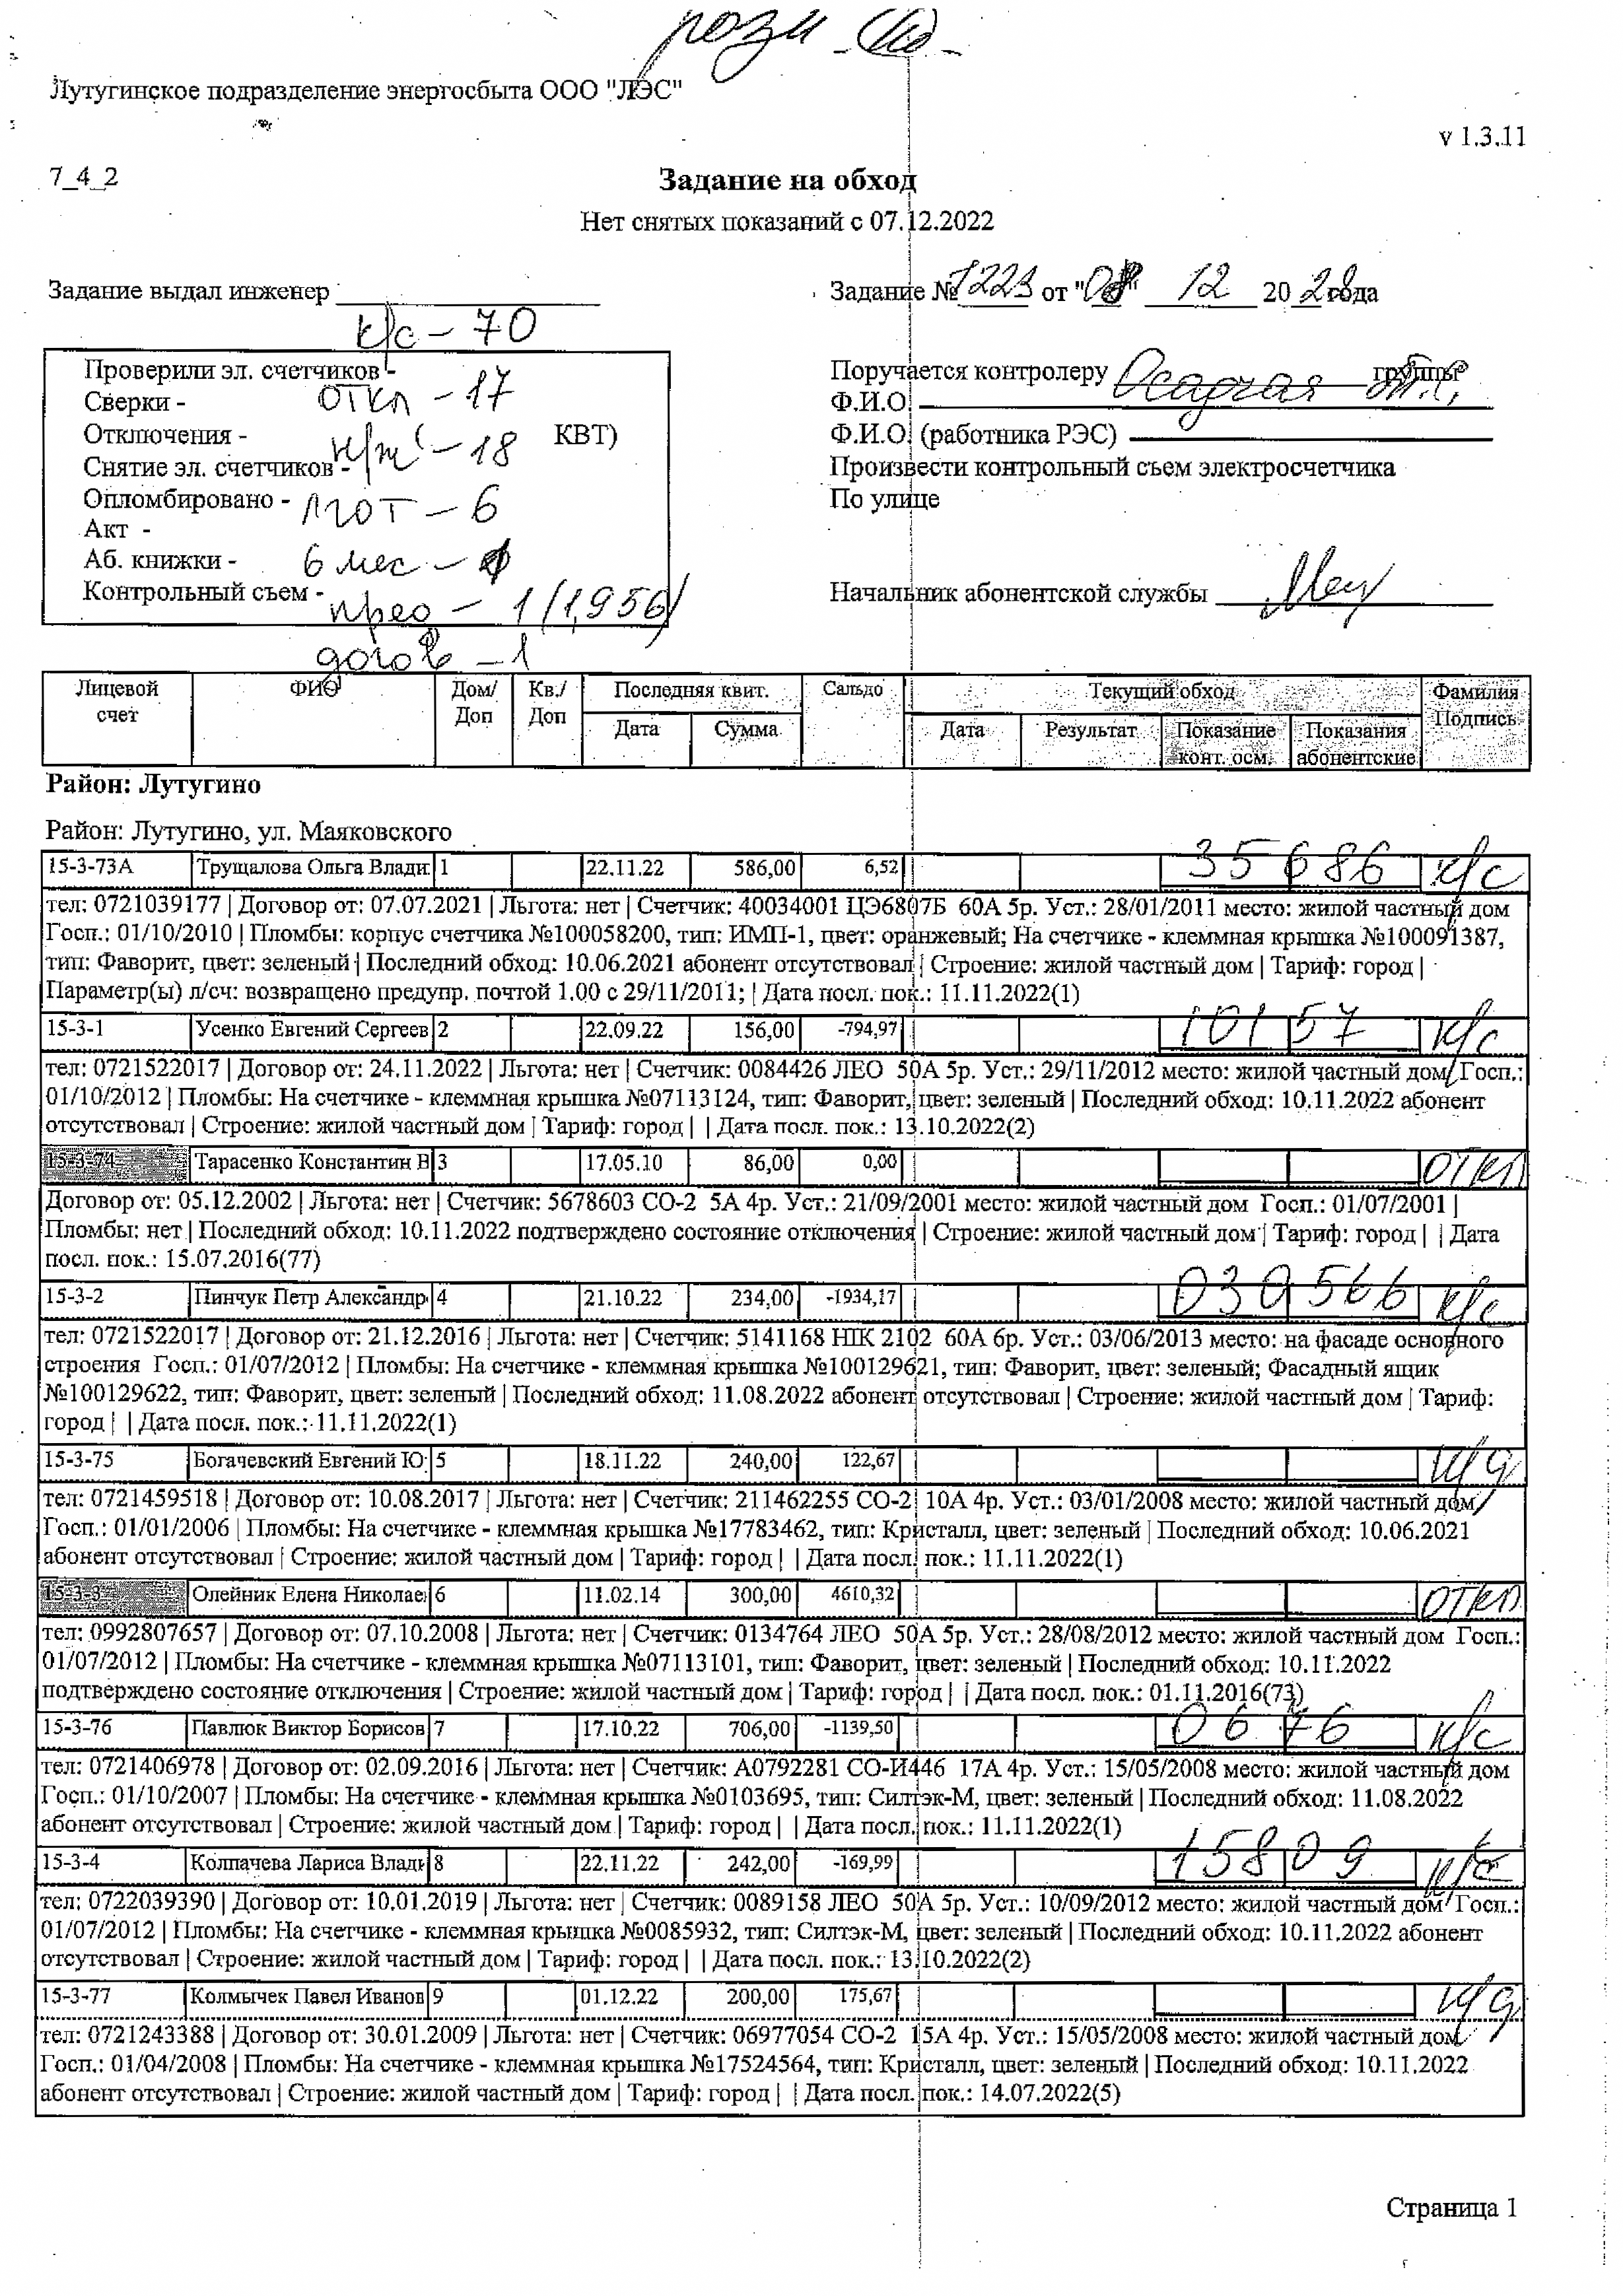 Лутугинское подразделение энергосбыта ООО "ЛЭС"
v 1.3.11
7_4_2
Задание на обход
Нет снятых показаний с 07.12.2022
Задание выдал инженер
Задание № 1223 от "08" 12 20 года
к/с - 70
Проверили эл. счетчиков -
Сверки - откл - 17
Отключения - КВТ)
Снятие эл. счетчиков - н/ж - 18
Опломбировано - льгот - 6
Акт -
Аб. книжки - 6 мес -
Контрольный съем - 1 (1,956)
догов - 1
Поручается контролеру Осадчая группы
Ф.И.О.
Ф.И.О. (работника РЭС)
Произвести контрольный съем электросчетчика
По улице
Начальник абонентской службы
Лицевой счет ФИО Дом/ Доп Кв./ Доп Последняя квит. Сальдо Текущий обход Фамилия Подпись
Дата Сумма Дата Результат Показание конт. осм. Показания абонентские
Район: Лутугино
Район: Лутугино, ул. Маяковского
15-3-73А Трущалова Ольга Влади 1 22.11.22 586,00 6,52 35686 к/с
тел: 0721039177 | Договор от: 07.07.2021 | Льгота: нет | Счетчик: 40034001 ЦЭ6807Б 60А 5р. Уст.: 28/01/2011 место: жилой частный дом
Госп.: 01/10/2010 | Пломбы: корпус счетчика №100058200, тип: ИМП-1, цвет: оранжевый; На счетчике - клеммная крышка №100091387,
тип: Фаворит, цвет: зеленый | Последний обход: 10.06.2021 абонент отсутствовал | Строение: жилой частный дом | Тариф: город |
Параметр(ы) л/сч: возвращено предупр. почтой 1.00 с 29/11/2011; | Дата посл. пок.: 11.11.2022(1)
15-3-1 Усенко Евгений Сергеев 2 22.09.22 156,00 -794,97 10157 к/с
тел: 0721522017 | Договор от: 24.11.2022 | Льгота: нет | Счетчик: 0084426 ЛЕО 50А 5р. Уст.: 29/11/2012 место: жилой частный дом Госп.:
01/10/2012 | Пломбы: На счетчике - клеммная крышка №07113124, тип: Фаворит, цвет: зеленый | Последний обход: 10.11.2022 абонент
отсутствовал | Строение: жилой частный дом | Тариф: город | | Дата посл. пок.: 13.10.2022(2)
15-3-74 Тарасенко Константин В 3 17.05.10 86,00 0,00 откл
Договор от: 05.12.2002 | Льгота: нет | Счетчик: 5678603 СО-2 5А 4р. Уст.: 21/09/2001 место: жилой частный дом Госп.: 01/07/2001 |
Пломбы: нет | Последний обход: 10.11.2022 подтверждено состояние отключения | Строение: жилой частный дом | Тариф: город | | Дата
посл. пок.: 15.07.2016(77)
15-3-2 Пинчук Петр Александр 4 21.10.22 234,00 -1934,17 030566 к/с
тел: 0721522017 | Договор от: 21.12.2016 | Льгота: нет | Счетчик: 5141168 НІК 2102 60А 6р. Уст.: 03/06/2013 место: на фасаде основного
строения Госп.: 01/07/2012 | Пломбы: На счетчике - клеммная крышка №100129621, тип: Фаворит, цвет: зеленый; Фасадный ящик
№100129622, тип: Фаворит, цвет: зеленый | Последний обход: 11.08.2022 абонент отсутствовал | Строение: жилой частный дом | Тариф:
город | | Дата посл. пок.: 11.11.2022(1)
15-3-75 Богачевский Евгений Ю 5 18.11.22 240,00 122,67 н/д
тел: 0721459518 | Договор от: 10.08.2017 | Льгота: нет | Счетчик: 211462255 СО-2 10А 4р. Уст.: 03/01/2008 место: жилой частный дом
Госп.: 01/01/2006 | Пломбы: На счетчике - клеммная крышка №17783462, тип: Кристалл, цвет: зеленый | Последний обход: 10.06.2021
абонент отсутствовал | Строение: жилой частный дом | Тариф: город | | Дата посл. пок.: 11.11.2022(1)
15-3-3 Олейник Елена Николае 6 11.02.14 300,00 4610,32 откл
тел: 0992807657 | Договор от: 07.10.2008 | Льгота: нет | Счетчик: 0134764 ЛЕО 50А 5р. Уст.: 28/08/2012 место: жилой частный дом Госп.:
01/07/2012 | Пломбы: На счетчике - клеммная крышка №07113101, тип: Фаворит, цвет: зеленый | Последний обход: 10.11.2022
подтверждено состояние отключения | Строение: жилой частный дом | Тариф: город | | Дата посл. пок.: 01.11.2016(73)
15-3-76 Павлюк Виктор Борисов 7 17.10.22 706,00 -1139,50 0676 к/с
тел: 0721406978 | Договор от: 02.09.2016 | Льгота: нет | Счетчик: А0792281 СО-И446 17А 4р. Уст.: 15/05/2008 место: жилой частный дом
Госп.: 01/10/2007 | Пломбы: На счетчике - клеммная крышка №0103695, тип: Силтэк-М, цвет: зеленый | Последний обход: 11.08.2022
абонент отсутствовал | Строение: жилой частный дом | Тариф: город | | Дата посл. пок.: 11.11.2022(1)
15-3-4 Колпачева Лариса Влади 8 22.11.22 242,00 -169,99 15809 к/с
тел: 0722039390 | Договор от: 10.01.2019 | Льгота: нет | Счетчик: 0089158 ЛЕО 50А 5р. Уст.: 10/09/2012 место: жилой частный дом Госп.:
01/07/2012 | Пломбы: На счетчике - клеммная крышка №0085932, тип: Силтэк-М, цвет: зеленый | Последний обход: 10.11.2022 абонент
отсутствовал | Строение: жилой частный дом | Тариф: город | | Дата посл. пок.: 13.10.2022(2)
15-3-77 Колмычек Павел Иванов 9 01.12.22 200,00 175,67 н/д
тел: 0721243388 | Договор от: 30.01.2009 | Льгота: нет | Счетчик: 06977054 СО-2 15А 4р. Уст.: 15/05/2008 место: жилой частный дом
Госп.: 01/04/2008 | Пломбы: На счетчике - клеммная крышка №17524564, тип: Кристалл, цвет: зеленый | Последний обход: 10.11.2022
абонент отсутствовал | Строение: жилой частный дом | Тариф: город | | Дата посл. пок.: 14.07.2022(5)
Страница 1